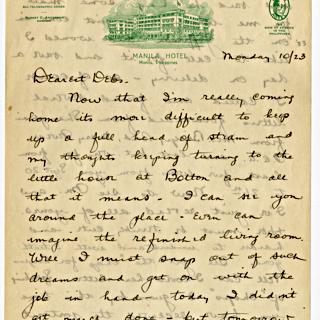 MANILA HOTEL
Manila, Philippines
Monday 10/23
Dearest Debs.
Now that I'm really coming
home its more difficult to keep
up a full head of steam and
my thoughts keeping turning to the
little house at Bolton and all
that it means - I can see you
around the place - even can
imagine the refinished living room.
Well I must snap out of such
dreams and get on with the
job in hand - today I didn't
get much done - but tomorrow